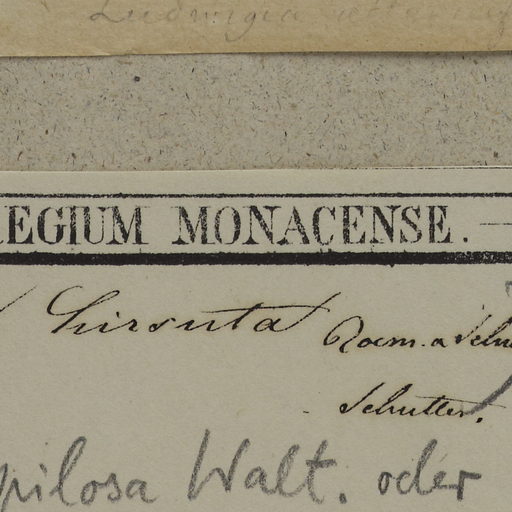 Ludwigia
REGIUM MONACENSE.
hirsuta Roem. a Schu
Schultes.
pilosa Walt. oder